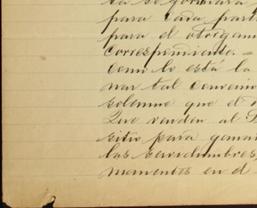 ta se formará
para cada part
para el otorgam
correspondiente. =
como lo está la
nar tal convenio
solemne que el
Que venden al D
sitio para ganar
las servidumbres,
momentos en el